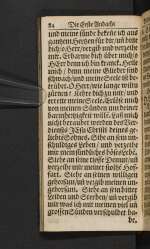 84 Die Erste Andacht
und meine sünde bekenn ich aus
gantzem Hertzen für dir/ und bitte
dich/ o Herr/ vergib und verzeihe
mir. Erbarme dich über mich/ o
HErr denn ich bin kranck. Heile
mich/ denn meine Glieder sind
und meine Seele ist
trübet. O Herr/ wie lange wiltu
zürnen? Kehre dich zu mir/ und
errette meine Seele. Erlöse mich
von meinen Sünden um deiner
barmhertzigkeit willen. Laß mich
nicht beraubet werden des Ver-
dienstes JEsu Christi deines ge-
liebten Sohnes. Siehe an sein un-
schuldiges Leben/ und verzeihe
mir mein sündliches böses Leben.
Siehe an seine tieffe Demut/ und
verzeihe mir meine stoltze Hof-
fart. Siehe an seinen willigen
gehorsam/ und vergib meinen un-
gehorsam. Siehe an sein bitter
Leiden und Sterben/ und vergib
mir was ich mit meinen viel und
grossen Sünden verschuldet ha-
be.